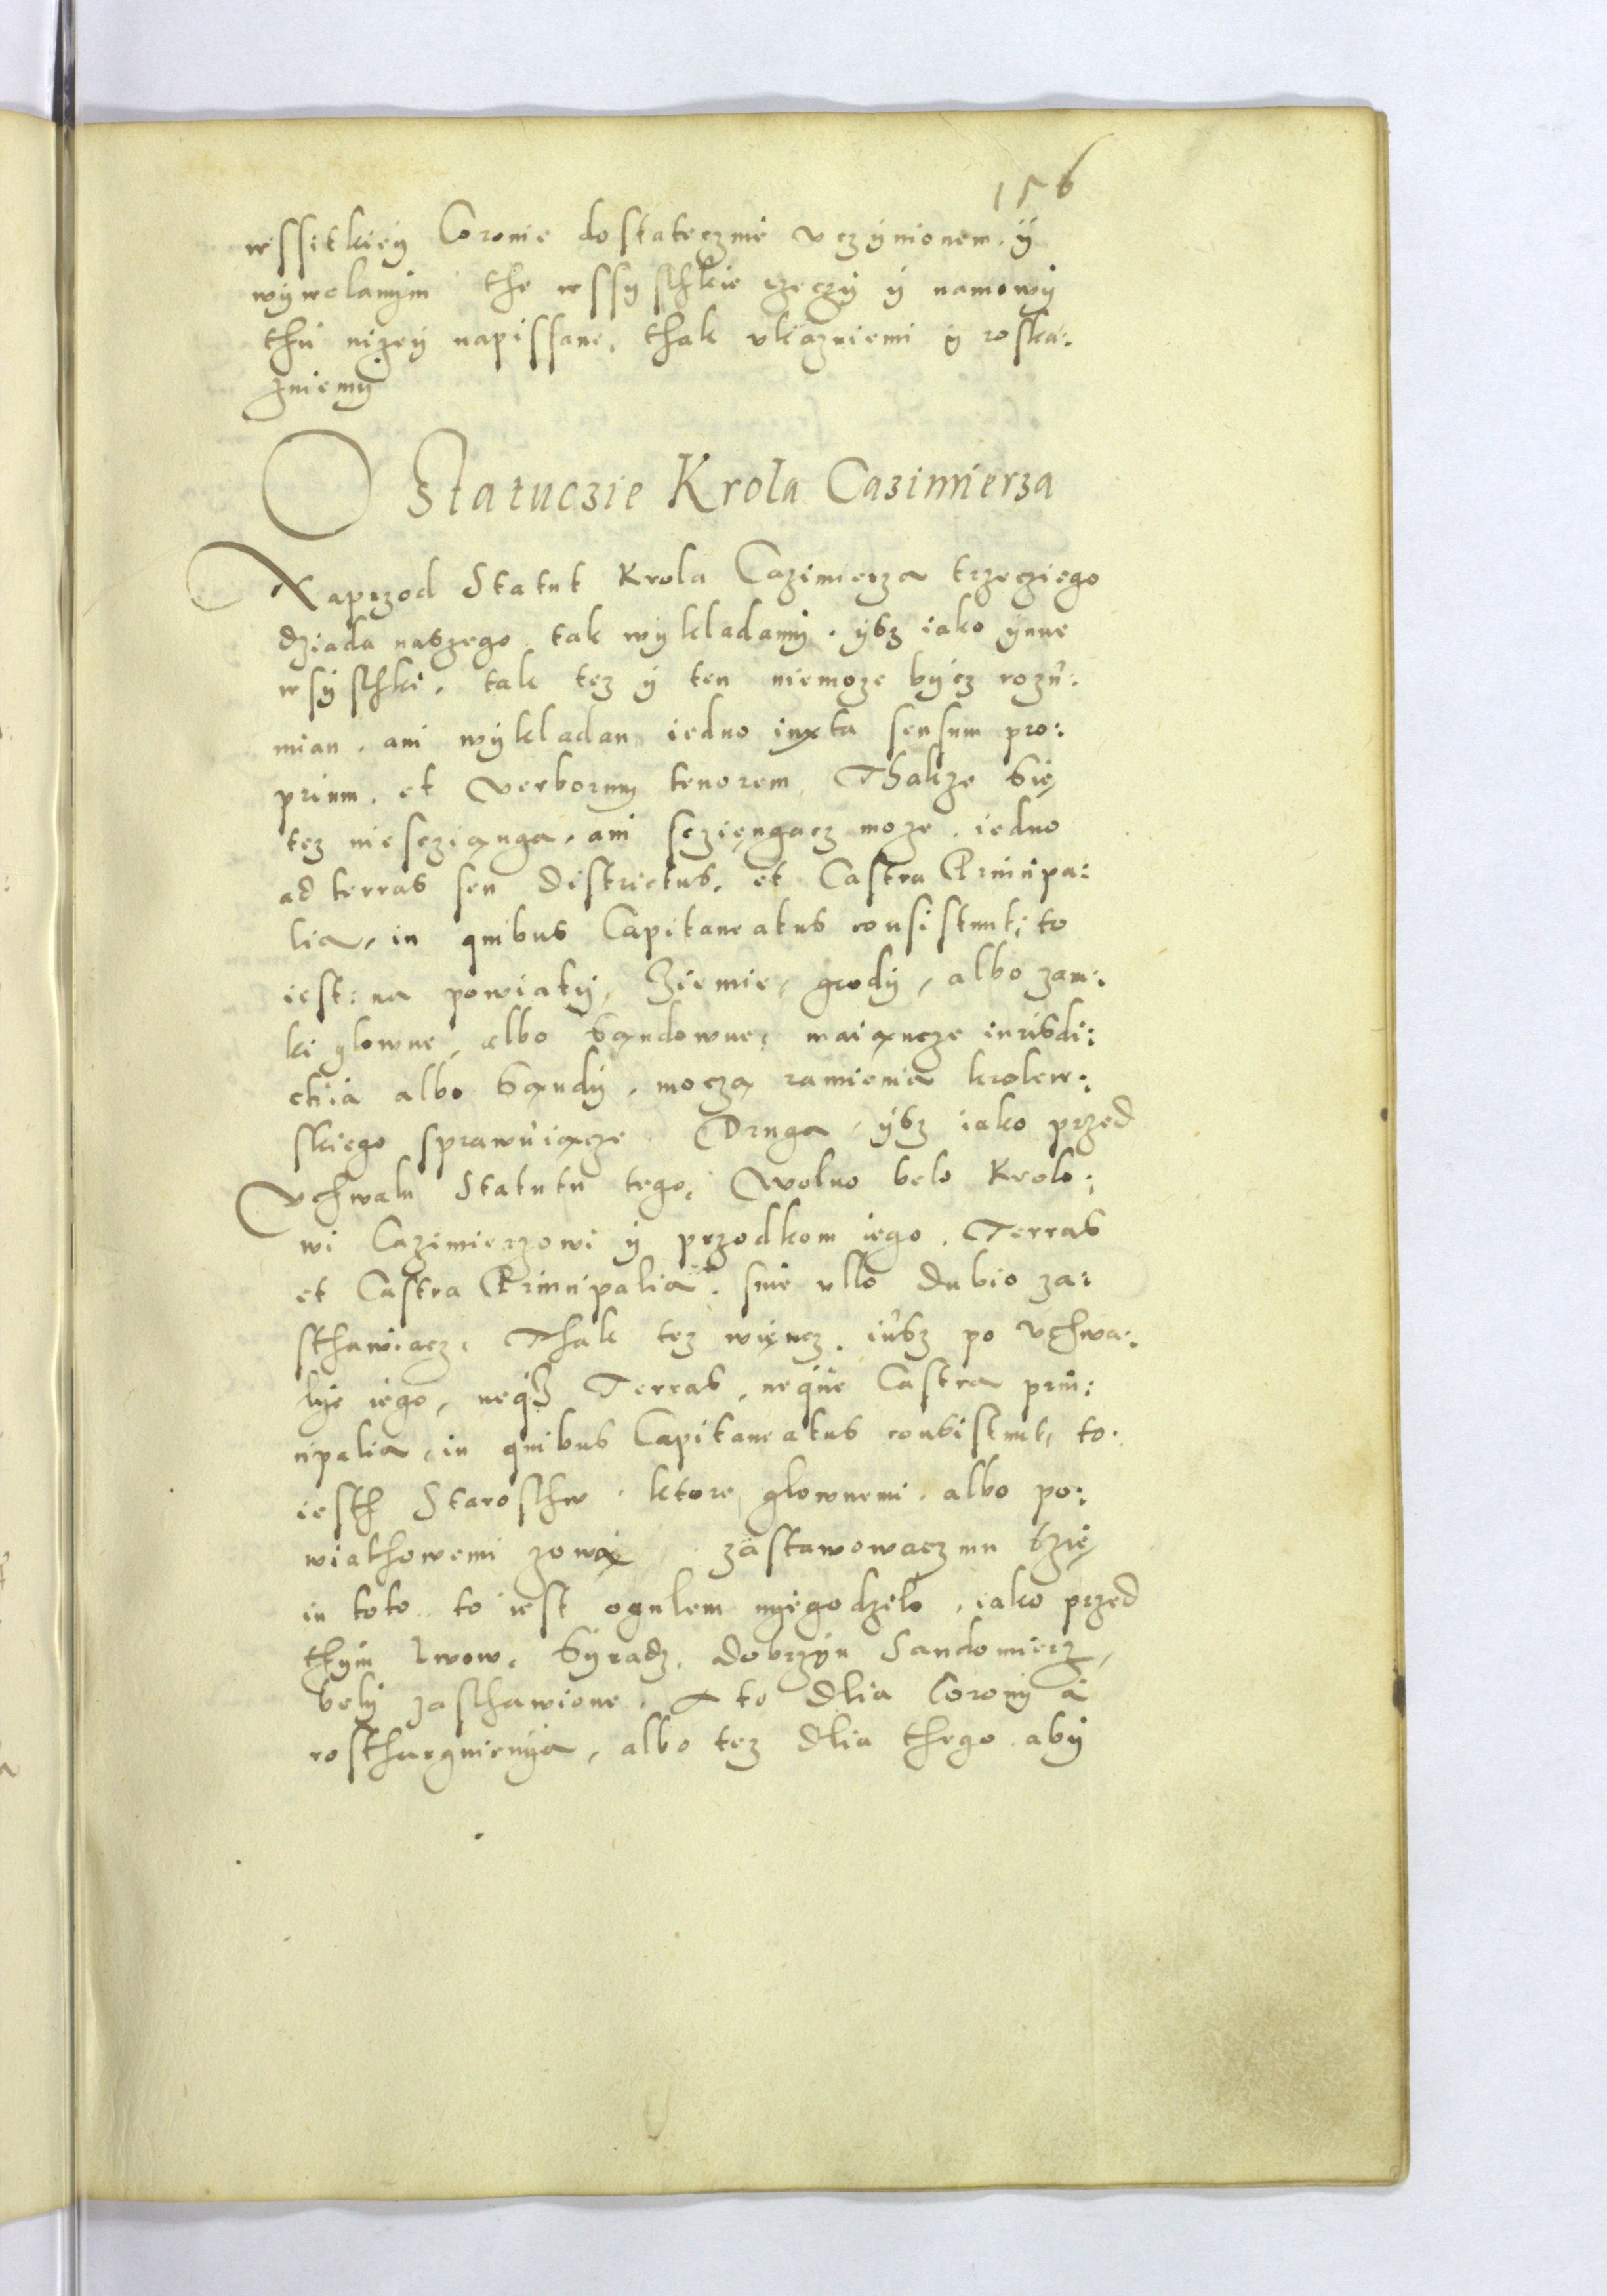 156
wssitkiey Coronie dostatecznie vczynionem. y
wywolanym the wssysthkie rzeczy y namowy
thu nizey napissane, thak vkazuiemi y roska:
zuiemy
O Statuczie Krola Cazimierza
Naprzod Statut Krola Cazimierza trzecziego
dziada naszego. tak wykladamy. ysz iako ynne
wsysthki, tak tez y ten niemoze bycz rozu:
mian. ani wykladan iedno iuxta sensum pro:
prium. et verborum tenorem, Thakze sie
tez niescziąnga. ani scziengacz moze. iedno
ad terras seu districtus, et Castra Principa:
lia, in quibus Capitaneatus consistunt, to
iest: na powiaty, Ziemie, grody, albo zam:
ki glowne, albo sąndowne, maiąncze iurisdi:
ctia albo sąndy. moczą ramienia krolew:
skiego sprawuiącze. Druga, ysz iako przed
vchwalu Statutu tego, wolno belo Krolo:
wi Cazimierzowi y przodkom iego. Terras
et Castra Principalia. sine ullo dubio za:
sthawiacz, Thak tez więncz. iusz po vchwa:
lye iego, neque Terras, neque Castra prin:
cipalia, in quibus Capitaneatus consistunt, to
iesth Starosthw. ktore glownemi. albo po:
wiathowemi zową zastawowacz mu szie
in toto. to iest ogulem nyegodzelo, iako przed
thym Lwow, Syradz, Dobrzyn Sandomierz,
bely zasthawione. A to dlia Corony a
rosthargnienya, albo tez dlia thego. aby